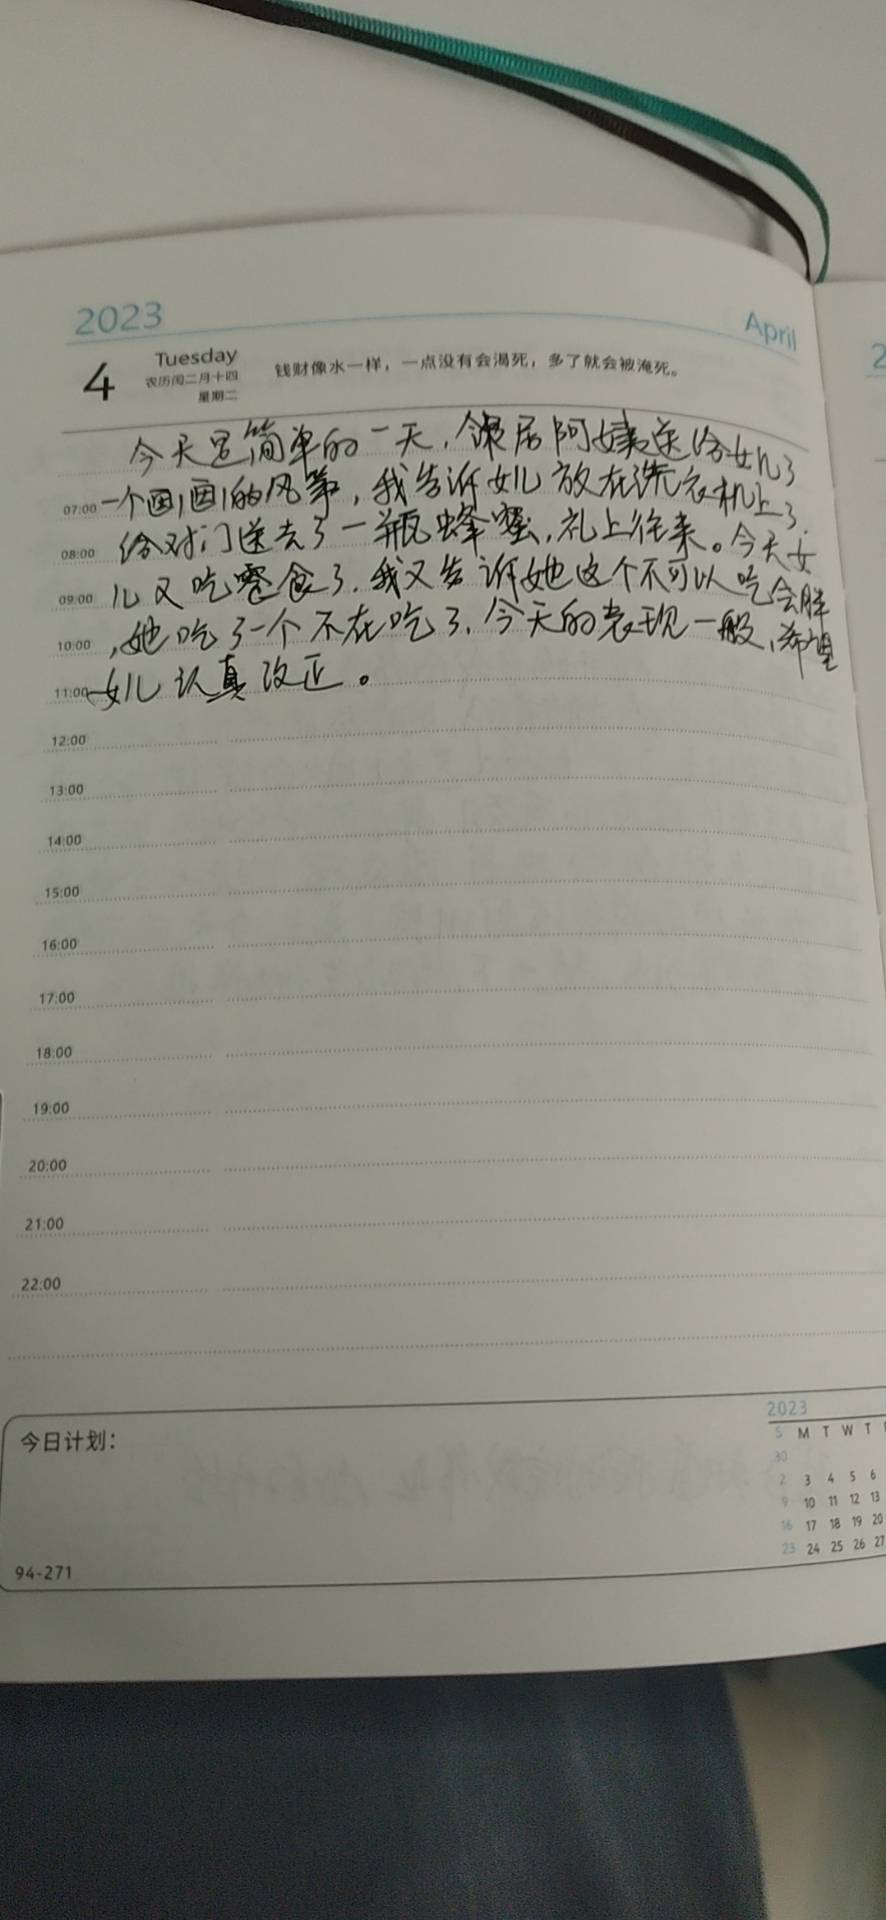 2023
April
4
Tuesday
农历闰二月十四
星期二
钱财像水一样，一点没有会渴死，多了就会被淹死。
今天是简单的一天，邻居阿姨送给女儿了
07:00 一个画画的风筝，我告诉女儿放在洗衣机上了.
08:00 给对门送去了一瓶蜂蜜，礼上往来。今天女
09:00 儿又吃零食了.我又告诉她这个不可以吃会胖
10:00 ，她吃了一个不在吃了.今天的表现一般，希望
11:00 女儿认真改正。
12:00
13:00
14:00
15:00
16:00
17:00
18:00
19:00
20:00
21:00
22:00
今日计划：
94-271
2023
S M T W T
30
2 3 4 5 6
9 10 11 12 13
16 17 18 19 20
23 24 25 26 27